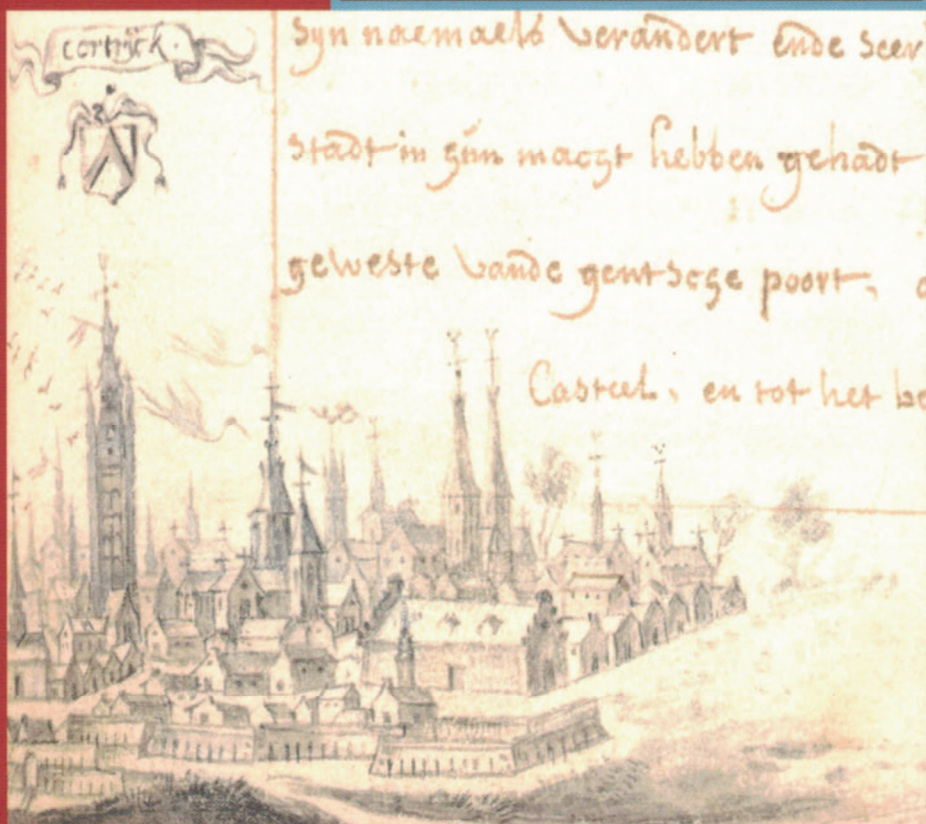 cortrijck.
syn naemaels verandert ende seer
stadt in sijn macgt hebben gehadt
geweste vande gentscge poort,
Casteel, en tot het be